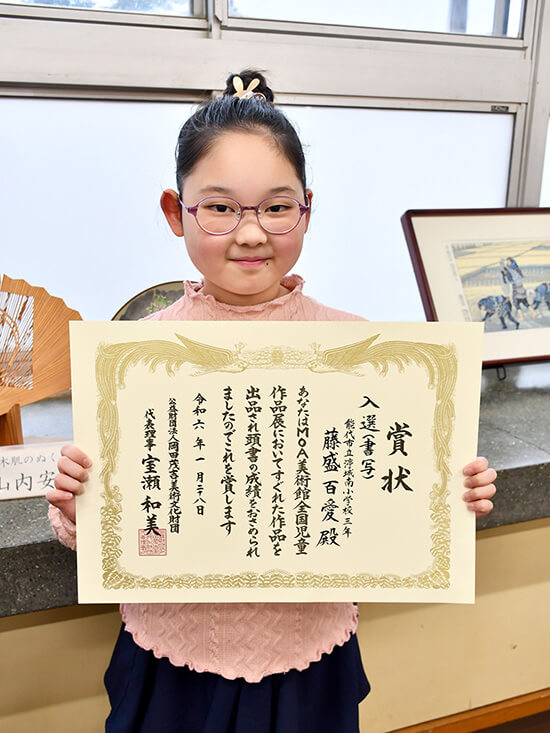 賞状
入選(書写)
能代市立渟城南小学校三年
藤盛百愛殿
あなたはMOA美術館全国児童
作品展においてすぐれた作品を
出品され頭書の成績をおさめられ
ましたのでこれを賞します
令和六年一月二十八日
公益財団法人岡田茂吉美術文化財団
代表理事室瀬和美
木肌のぬく
山内安